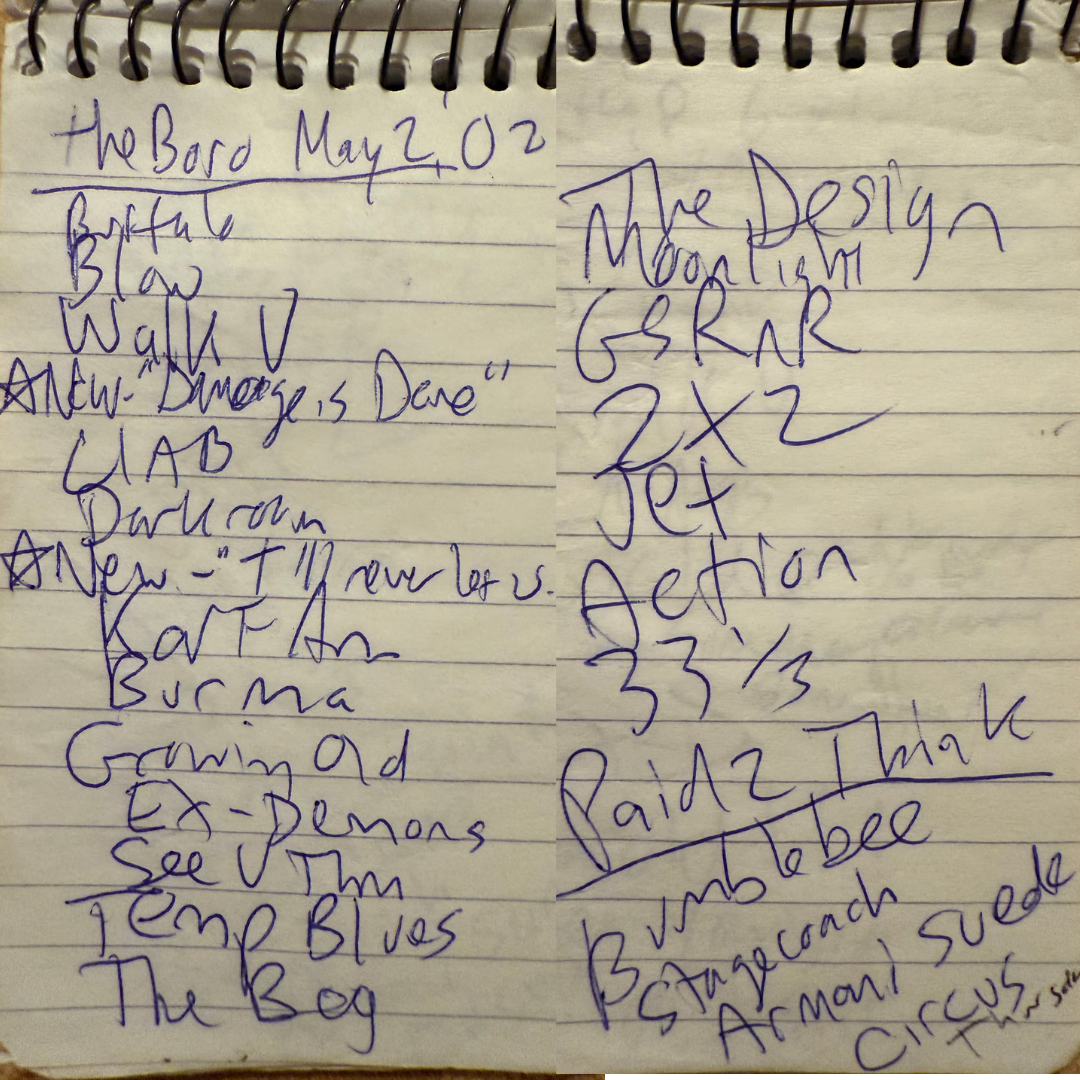 The Boro May 2, '02
Buffalo
Blow
Walk U
New - "Damage is Done"
CIAB
Darkroom
New - "I'll never let us.
Kart An
Burma
Growin Old
Ex-Demons
See U Thru
Temp Blues
The Bog
The Design
Moonlight
GSRNR
2x2
Jet
Action
33 1/3
Paid 2 Think
Bumblebee
Stagecoach
Armani Suede
Circus